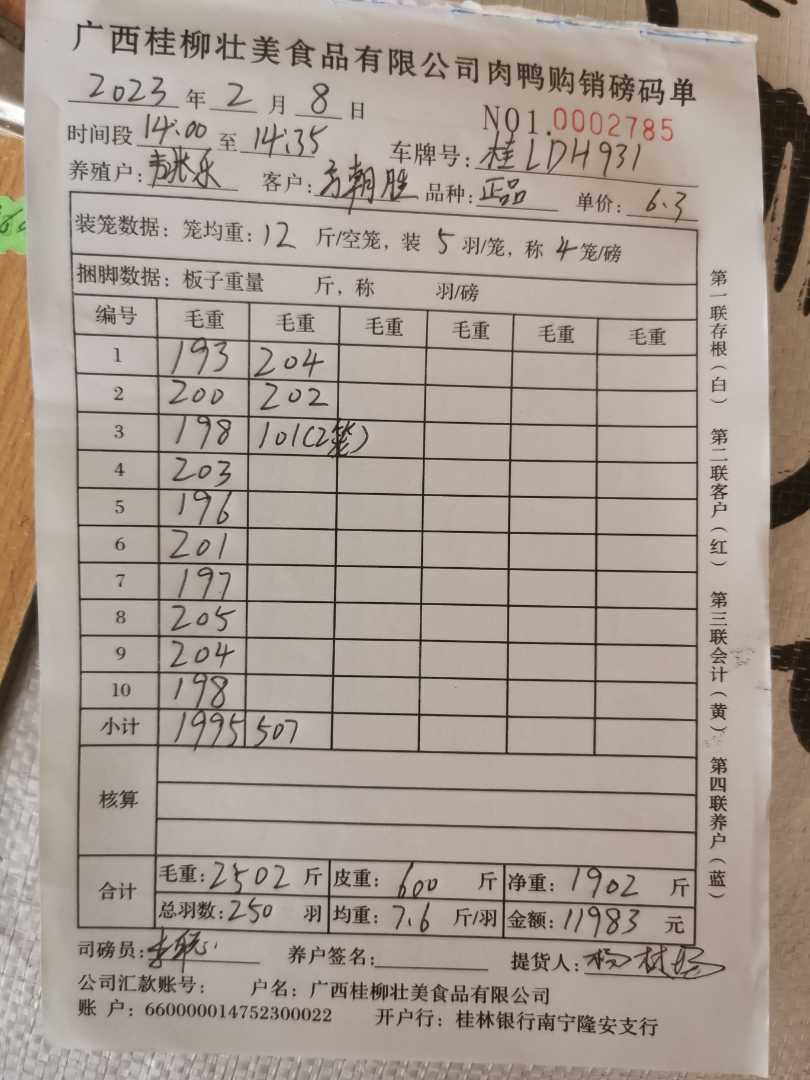 广西桂柳壮美食品有限公司肉鸭购销磅码单
2023 年 2 月 8 日 NO1.0002785
时间段 14:00 至 14:35 车牌号: 桂LDH931
养殖户: 客户: 方朝胜 品种: 正品 单价: 6.3
装笼数据: 笼均重: 12 斤/空笼, 装 5 羽/笼, 称 4 笼/磅
捆脚数据: 板子重量 斤, 称 羽/磅
编号 毛重 毛重 毛重 毛重 毛重 毛重
1 193 204
2 200 202
3 198 101(2笼)
4 203
5 196
6 201
7 197
8 205
9 204
10 198
小计 1995 507
核算
合计 毛重: 2502 斤 皮重: 600 斤 净重: 1902 斤
总羽数: 250 羽 均重: 7.6 斤/羽 金额: 11983 元
司磅员: 养户签名: 提货人:
公司汇款账号: 户名: 广西桂柳壮美食品有限公司
账 户: 660000014752300022 开户行: 桂林银行南宁隆安支行
第一联存根(白) 第二联客户(红) 第三联会计(黄) 第四联养户(蓝)